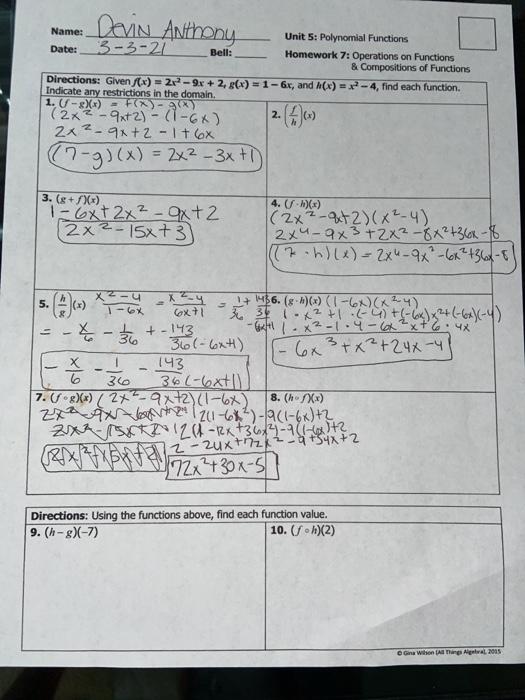 Name: Devin Anthony
Unit 5: Polynomial Functions
Date: 3-3-21 Bell:
Homework 7: Operations on Functions
& Compositions of Functions
Directions: Given f(x) = 2x² – 9x + 2, g(x) = 1 – 6x, and h(x) = x² – 4, find each function.
Indicate any restrictions in the domain.
1. (f – g)(x) = f(x) - g(x)
(2x² - 9x+2) - (1-6x)
2x² - 9x+2 -1+6x
(7-g)(x) = 2x² -3x+1
2. (f/h)(x)
3. (g + f)(x)
1-6x+2x²-9x+2
2x²-15x+3
4. (f · h)(x)
(2x²-9x+2)(x²-4)
2x⁴-9x³+2x²-8x²+36x-8
(7·h)(x) = 2x⁴-9x³-6x²+36x-8
5. (h/g)(x) x²-4/1-6x = x²-4/6x+1
= -x/6 - 1/36 + -143/36(-6x+1)
-x/6 - 1/36 - 143/36(-6x+1)
6. (g · h)(x) (1-6x)(x²-4)
1·x²+1·(-4)+(-6x)x²+(-6x)(-4)
1·x²-1·4-6x²x+6·4x
-6x³+x²+24x-4
7. (f ∘ g)(x) (2x²-9x+2)(1-6x)
2(1-6x²)-9(1-6x)+2
2-24x+72x²-9+54x+2
72x²+30x-5
8. (h ∘ f)(x)
Directions: Using the functions above, find each function value.
9. (h – g)(–7)
10. (f ∘ h)(2)
© Gina Wilson (All Things Algebra), 2015